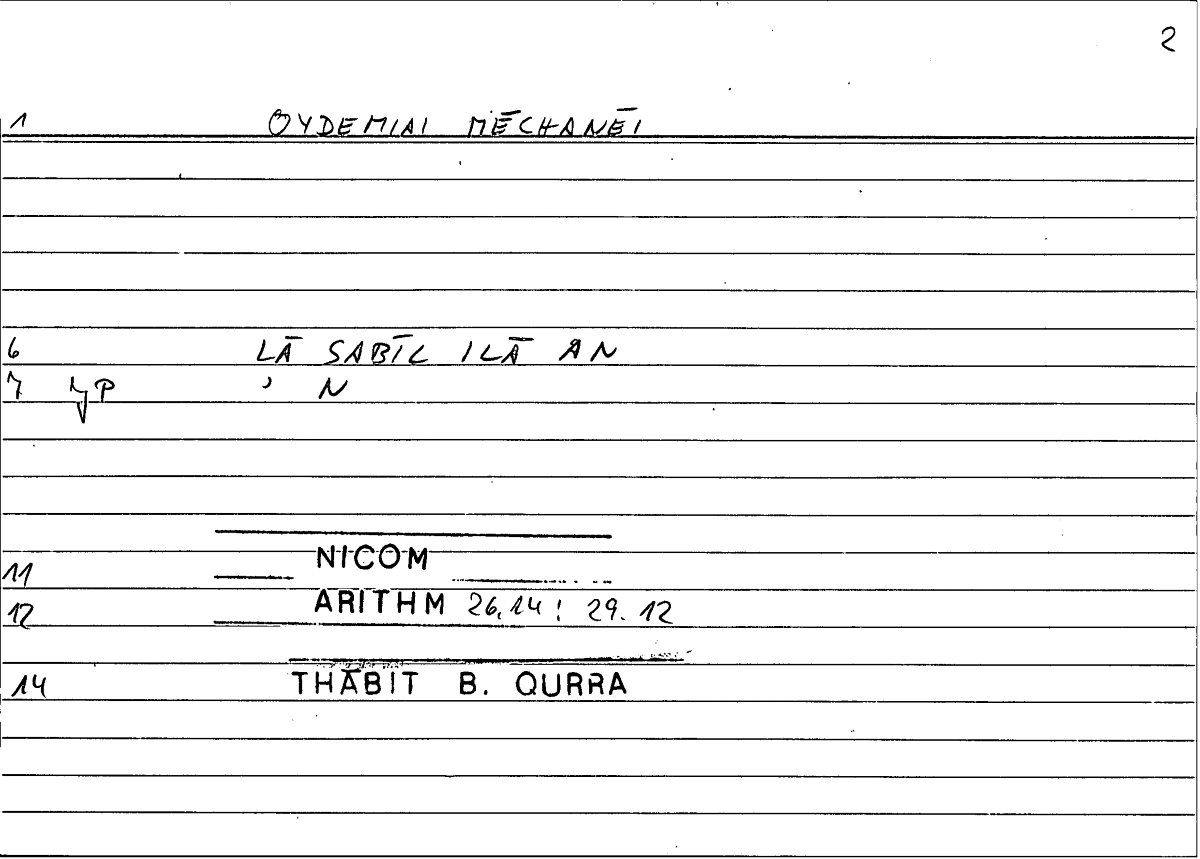 2
1 OYDEMIAI MĒCHANĒI
6 LĀ SABĪL ILĀ AN
7 P ʾ N
11 NICOM
12 ARITHM 26,14 : 29.12
14 THĀBIT B. QURRA